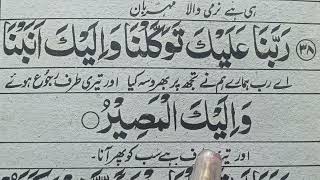 ہی ہے نرمی والا مہربان
رَبَّنَا عَلَيْكَ تَوَكَّلْنَا وَاِلَيْكَ اَنَبْنَا ﴿۳۸﴾
اے رب ہمارے ہم نے تجھ پر بھروسہ کیا اور تیری طرف رجوع ہوئے
وَاِلَيْكَ الْمَصِيْرُ
اور طرف ہے سب کو پھر آنا۔